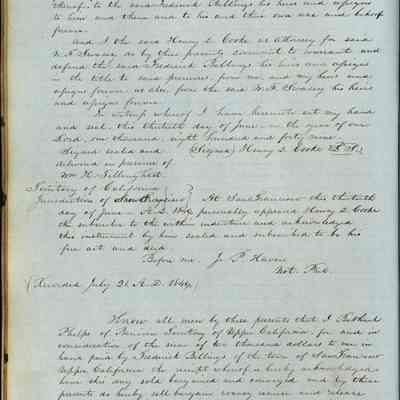 thereof: to the said Frederick Billings his heirs and assigns
to him and them and to his and their own use and behoof
forever.
And I the said Henry D. Cooke as Attorney for said
do by these presents covenant to warrant and
defend the said Frederick Billings his heirs and assigns
in the title to said premises from me and my heirs and
assigns forever as also from the said W. F. Swasey his heirs
and assigns forever.
In witness whereof I have hereunto set my hand
and seal this thirtieth day of June in the year of our
Lord, one thousand, eight hundred and forty nine.
Signed sealed and (Signed) Henry D. Cooke L. S.
delivered in presence of
Wm H. Tillinghast.
Territory of California
Jurisdiction of San Francisco } At San Francisco this thirtieth
day of June A. D. personally appeared Henry D. Cooke
the subscriber to the within indenture and acknowledged
this instrument by him sealed and subscribed to be his
free act and deed
Before me. J. P. Haven
Not. Pub.
(Recorded July 21 A. D. 1849)
Know all men by these presents that I
Phelps of Benicia Territory of Upper California for and in
consideration of the sum of two thousand dollars to me in
hand paid by Frederick Billings of the town of San Francisco
Upper California the receipt whereof is hereby acknowledged
have this day sold bargained and conveyed and by these
presents do hereby sell bargain convey remise and release